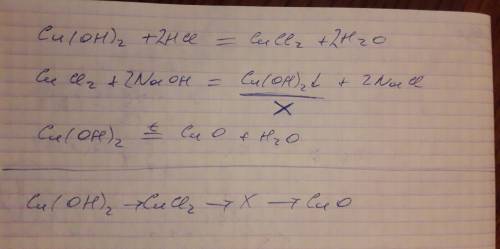 Cu(OH)₂ + 2HCl = CuCl₂ + 2H₂O
CuCl₂ + 2NaOH = Cu(OH)₂↓ + 2NaCl
X
Cu(OH)₂ t= CuO + H₂O
Cu(OH)₂ → CuCl₂ → X → CuO